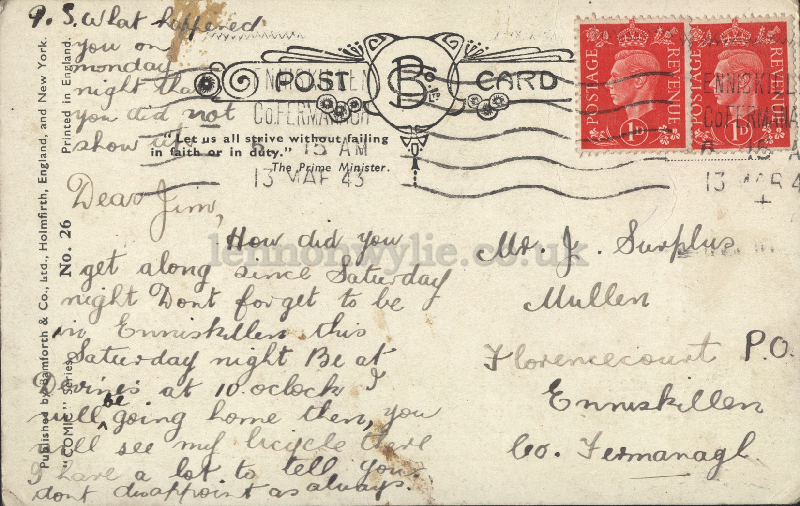 P.S. What happened
you on
monday
night that
you did not
show up
POST CARD
B & Co. Ltd
"Let us all strive without failing
in faith or in duty."
The Prime Minister.
POSTAGE REVENUE
1D
POSTAGE REVENUE
1D
ENNISKILLEN
Co. FERMANAGH
6 15 AM
13 MAR 43
ENNISKILLEN
Co. FERMANA
6 15 A
13 MAR 4
Dear Jim,
How did you
get along since Saturday
night Dont forget to be
in Enniskillen this
Saturday night Be at
Devines at 10 oclock I
will be going home then, you
will see my bicycle there
I have a lot to tell you.
dont disappoint as always.
Mr. J. Surplus
Mullen
Florencecourt P.O.
Enniskillen
Co. Fermanagh
Published by Bamforth & Co., Ltd., Holmfirth, England, and New York.
Printed in England.
"COMIC" Series, No. 26
lennonwylie.co.uk